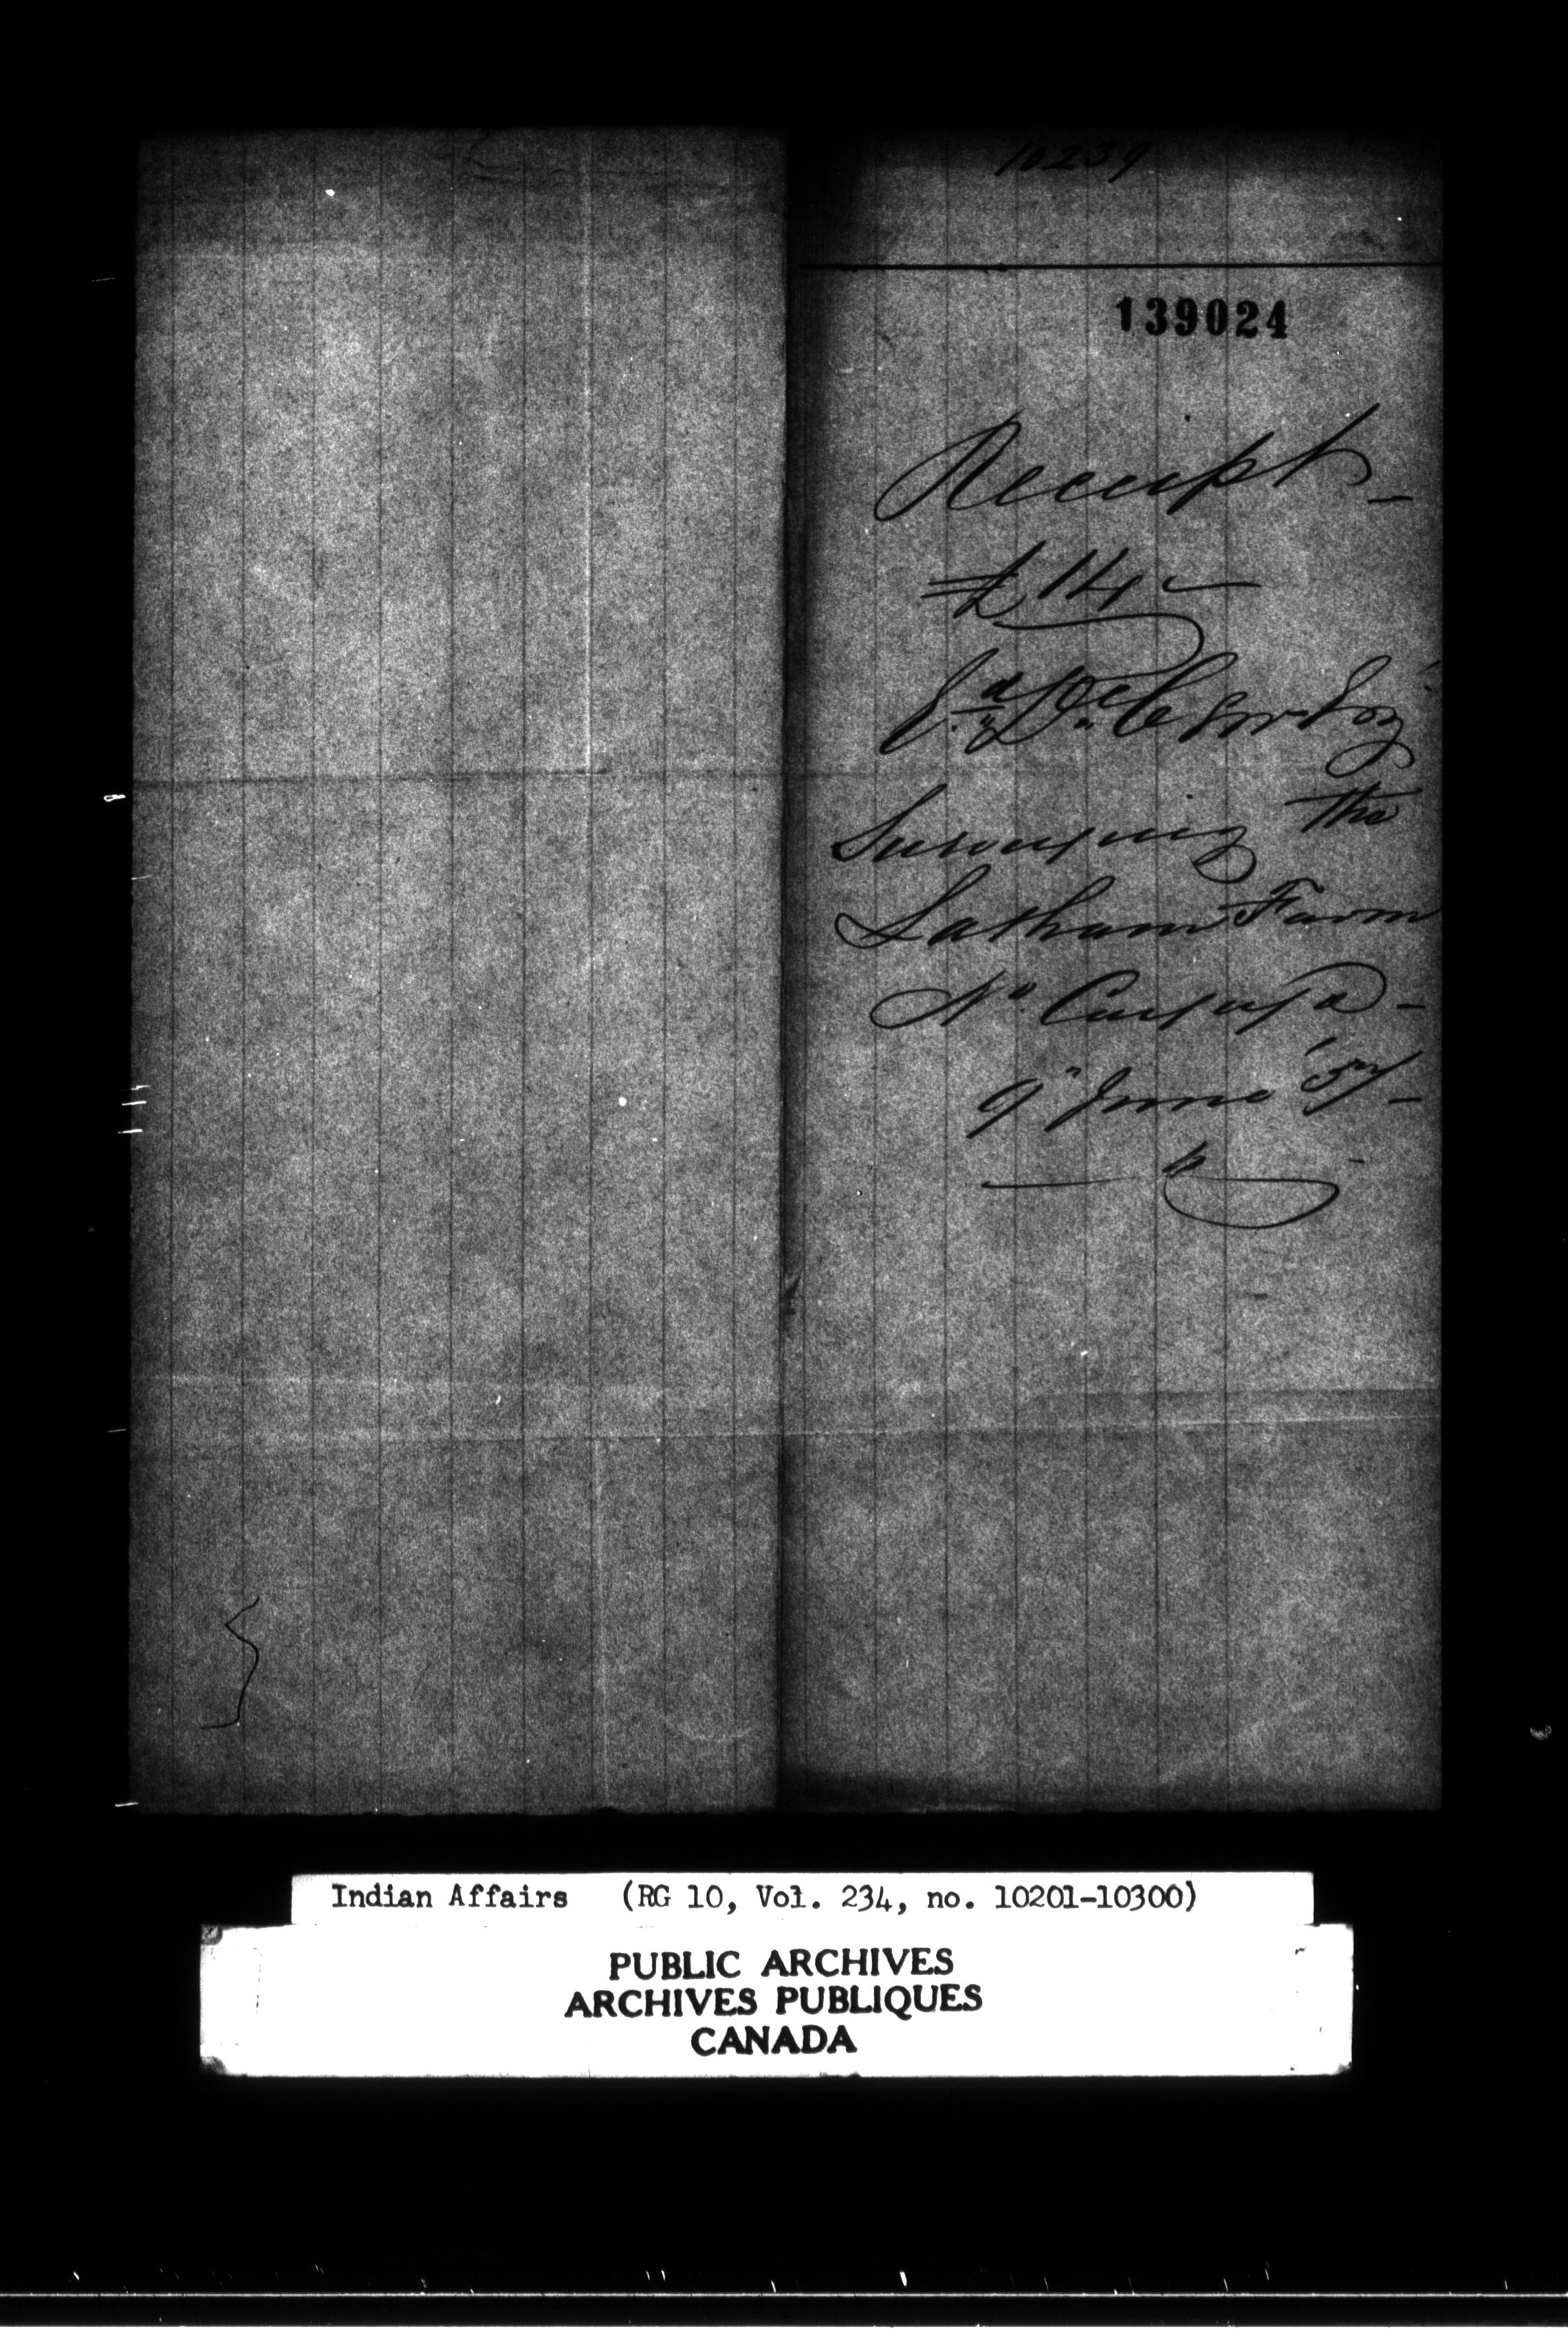 10239
139024
Receipt -
£14 -
Ed. De Cew Esq
Surveying the
Latham Farm
No. Cayuga -
9" June '57 -
Indian Affairs (RG 10, Vol. 234, no. 10201-10300)
PUBLIC ARCHIVES
ARCHIVES PUBLIQUES
CANADA